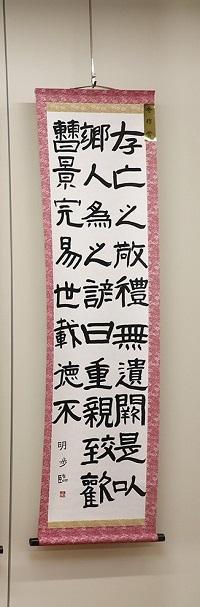 存亡之敬禮無遺闕是以
鄉人為之諺曰重親致歡
曹景完易世載德不
明歩臨